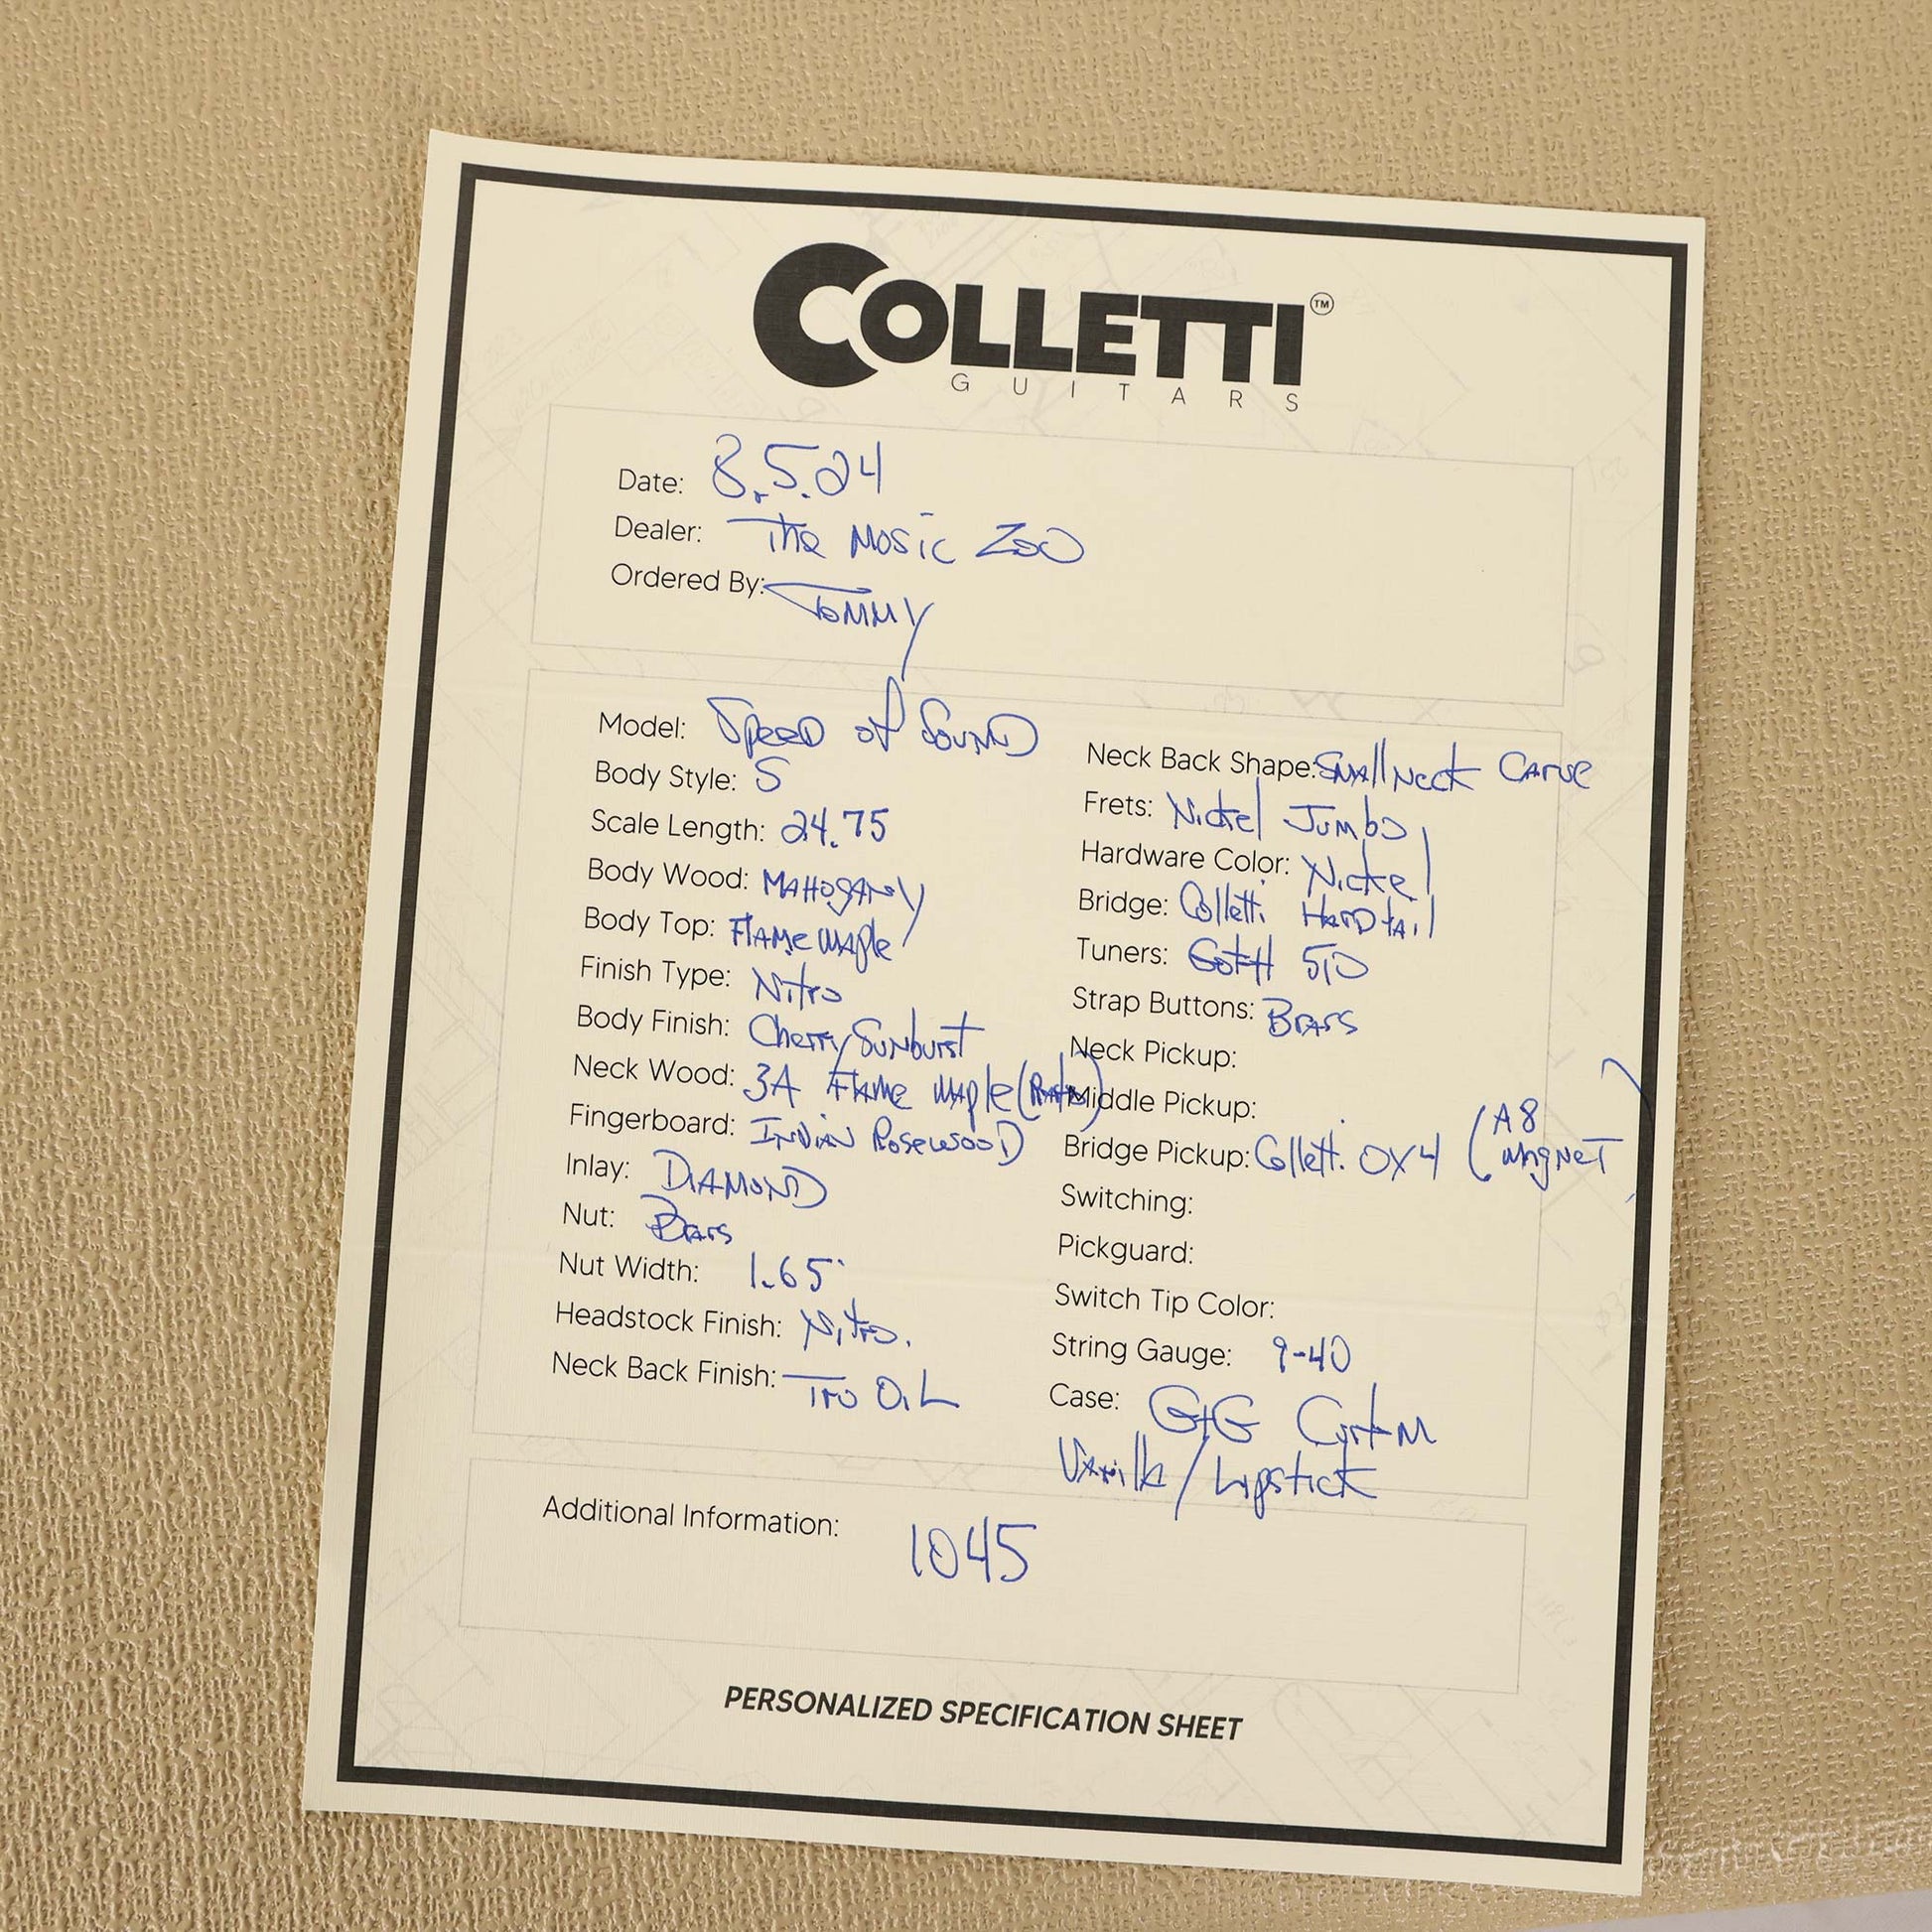 COLLETTI™
GUITARS
Date: 8.5.24
Dealer: The Mosic Zoo
Ordered By: Tommy
Model: Speed of Sound
Body Style: S
Scale Length: 24.75
Body Wood: Mahogany
Body Top: Flame maple
Finish Type: Nitro
Body Finish: Cherry Sunburst
Neck Wood: 3A Flame maple
Fingerboard: Indian Rosewood
Inlay: Diamond
Nut: Brass
Nut Width: 1.65
Headstock Finish: Nitro.
Neck Back Finish: Tru Oil
Neck Back Shape: Small Neck Carve
Frets: Nickel Jumbo
Hardware Color: Nickel
Bridge: Colletti Hardtail
Tuners: Gotoh 510
Strap Buttons: Brass
Neck Pickup:
Middle Pickup:
Bridge Pickup: Colletti OX4 (A8 magnet)
Switching:
Pickguard:
Switch Tip Color:
String Gauge: 9-40
Case: G+G Custom
Vanilla/Lipstick
Additional Information: 1045
PERSONALIZED SPECIFICATION SHEET